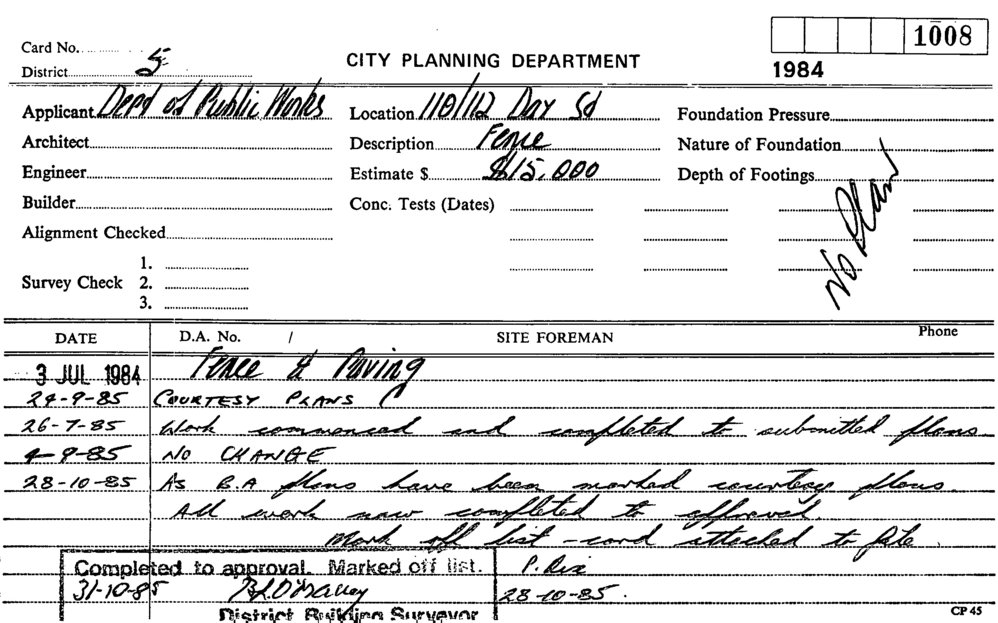 1008
Card No.
District 5
CITY PLANNING DEPARTMENT
1984
Applicant Dept of Public Works
Location 110/112 Day St
Foundation Pressure
Architect
Description Fence
Nature of Foundation
Engineer
Estimate $ $15,000
Depth of Footings
No Plan
Builder
Conc. Tests (Dates)
Alignment Checked
Survey Check 1.
2.
3.
DATE D.A. No. / SITE FOREMAN Phone
3 JUL 1984 Fence & Paving
24-9-85 COURTESY PLANS
26-7-85 Work commenced and completed to submitted plans
4-9-85 NO CHANGE
28-10-85 As B.A plans have been marked courtesy plans.
All work now completed to approval
Mark off list - card attached to file.
Completed to approval. Marked off list. P. Rix
31-10-85 28-10-85.
District Building Surveyor
CP 45